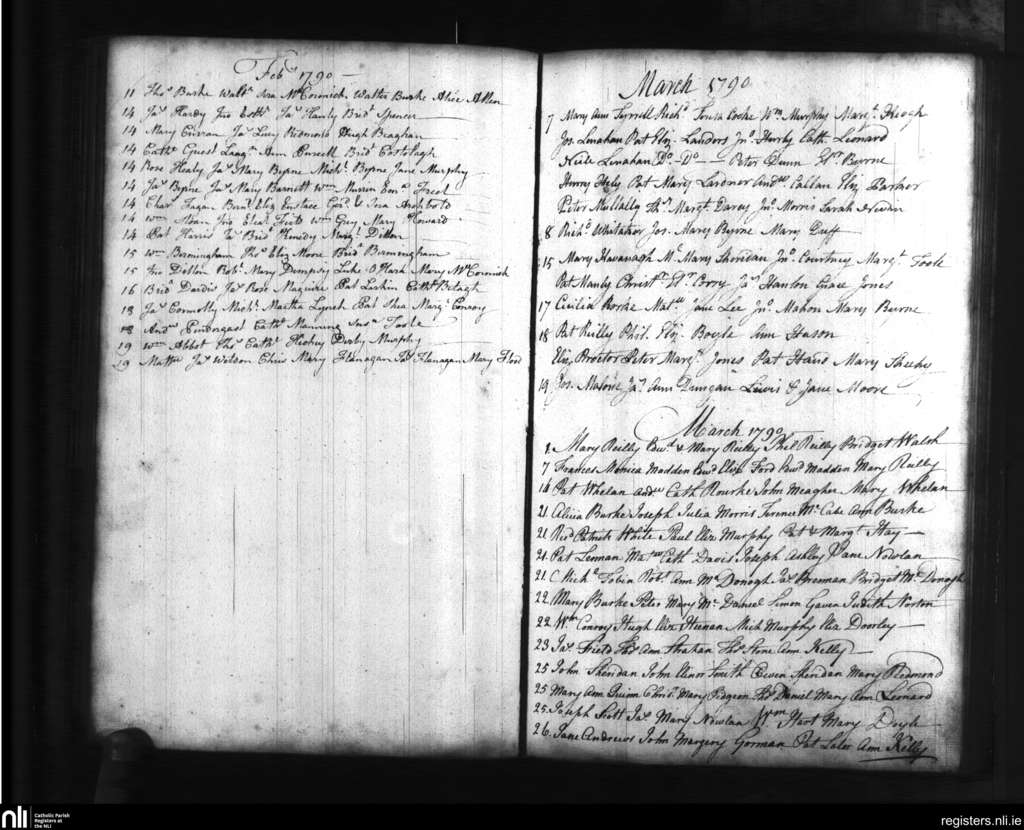 Feby 1790
11 Thos Burke Waltr Ann McCormick Walter Burke Alice Allen
14 Jas Hardy Jno Cathe Jas Hardy Bridt Spencer
14 Mary Curran Jas Lucy Redmond Hugh Braghan
14 Cathe Guest Ann Purcell Bridt Costolagh
14 Rose Healy Jas Mary Byrne Michl Byrne Jane Murphy
14 Jas Byrne Jas Mary Barnett Wm
14 Chars Fagan Bernd Eliz Eustace Archbold
14 Wm Jno Wm Guy Mary Howard
14 Pat Harris Jas Bridt Kennedy Margt Dillon
15 Wm Birmingham Thos Eliz Moore Bridt Birmingham
15 Jno Dillon Robt Mary Dempsey Luke O Hara Mary McCormick
16 Bridt Dardis Jas Rose Maguire Pat Larkin Cathe Betagh
18 Jas Connolly Michl Martha Lynch Pat Shea Margt Conroy
18 Andw Cathe Manning Toole
19 Wm Abbot Thos Cathe Hickey Derby Murphy
19 Mattw Jas Wilson Chris Mary Flanagan Jas Flanagan Mary Flood
March 1790
7 Mary Ann Tyrrell Richd Cooke Wm Murphy Margt Keogh
Jos Linahan Pat Eliz Landors Jno Hurley Cath Leonard
Linahan Do Do — Peter Dunn Byrne
Henry Pat Mary Lardner Andw Callan Eliz Barker
Peter Mullally Thos Margt Jno Morris Sarah
8 Richd Whitaker Jos Mary Byrne Mary Duff
15 Mary Kavanagh Ml Mary Sheridan Jno Courtney Margt Toole
Pat Manly Christr Corry Jas Hanlon Grace Jones
17 Cicilia Rorke Mattw Jane Lee Jno Mahon Mary Byrne
18 Pat Reilly Phil Eliz Boyle Ann
Eliz Procter Peter Margt Jones Pat Mary Sheehy
19 Jos Malone Jas Ann Duncan Lewis & Jane Moore
March 1790
1 Mary Reilly Edwd & Mary Reilly Phil Reilly Bridget Walsh
7 Frances Monica Madden Edwd Eliz Ford Edwd Madden Mary Reilly
14 Pat Whelan Andw Cath Rourke John Meagher Mary Whelan
21 Alicia Burke Joseph Julia Morris Terence McCabe Ann Burke
21 Richd Patrick White Paul Eliz Murphy Pat & Margt Hay
21 Pat Lennan Mattw Cath Davis Joseph Ashley Jane Nowlan
21 Tobin Robt Ann McDonogh Jas Brennan Bridget McDonogh
22 Mary Burke Peter Mary McDaniel Simon Gaven Judith Norton
22 Wm Conroy Hugh Eliz Heenan Mich Murphy Eliz Doorley
23 Jas Field Thos Ann Strahan Thos Stone Ann Kelly
25 John Sheridan John Elinor Smith Owen Sheridan Mary Redmond
25 Mary Ann Quinn Chrisr Mary Pidgeon Thos Daniel Mary Ann Leonard
25 Joseph Scott Jas Mary Nowlan Wm Hart Mary Doyle
26 Jane Andrews John Margery Gorman Pat Lalor Ann Kelly
nli
Catholic Parish
Registers at
the NLI
registers.nli.ie